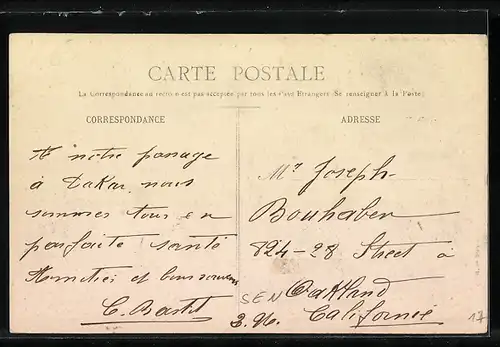 CARTE POSTALE
La Correspondance au recto n'est pas acceptée par tous les Pays Etrangers (Se renseigner à la Poste)
CORRESPONDANCE
ADRESSE
A notre passage
à Dakar nous
sommes tous en
parfaite santé
Amitiés et bons souvenirs
Mr Joseph
Bouhaben
824-28 Street à
Oakland
Californie
SEN
17